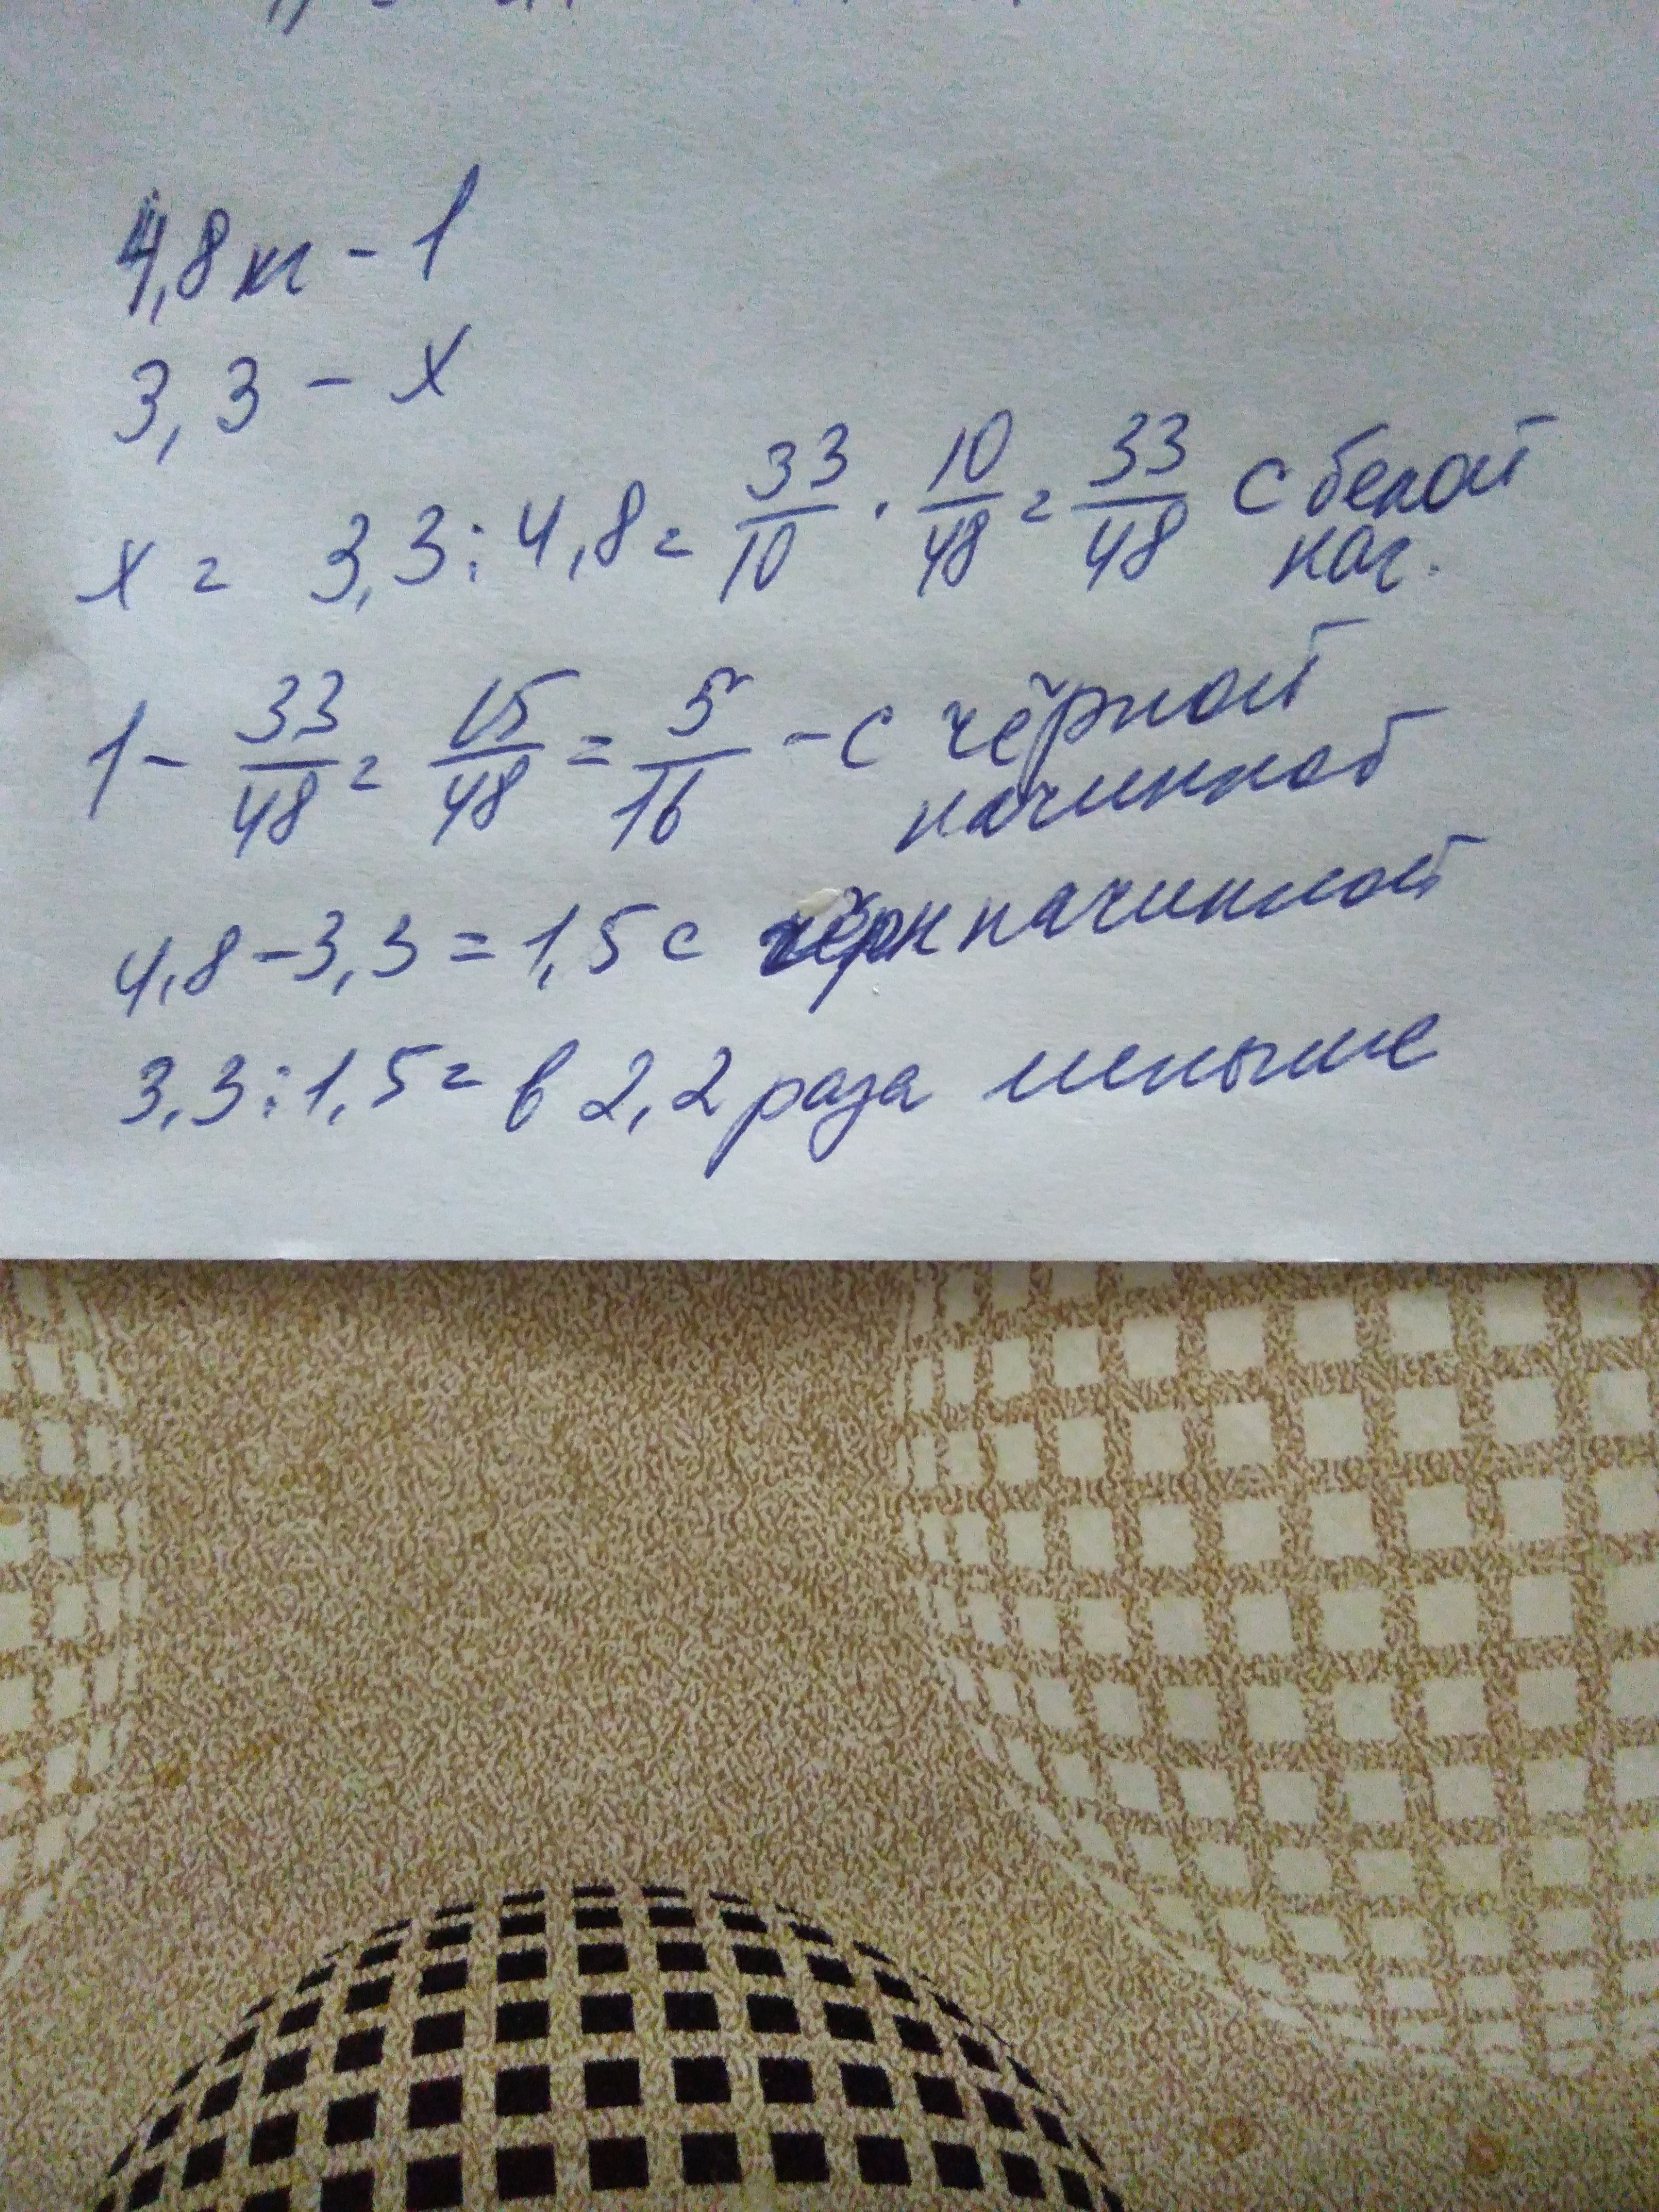 4,8 кг - 1
3,3 - х
х = 3,3 : 4,8 = 33/10 · 10/48 = 33/48 с белой нач.
1 - 33/48 = 15/48 = 5/16 - с чёрной начинкой
4,8 - 3,3 = 1,5 с чёрн начинкой
3,3 : 1,5 = в 2,2 раза меньше